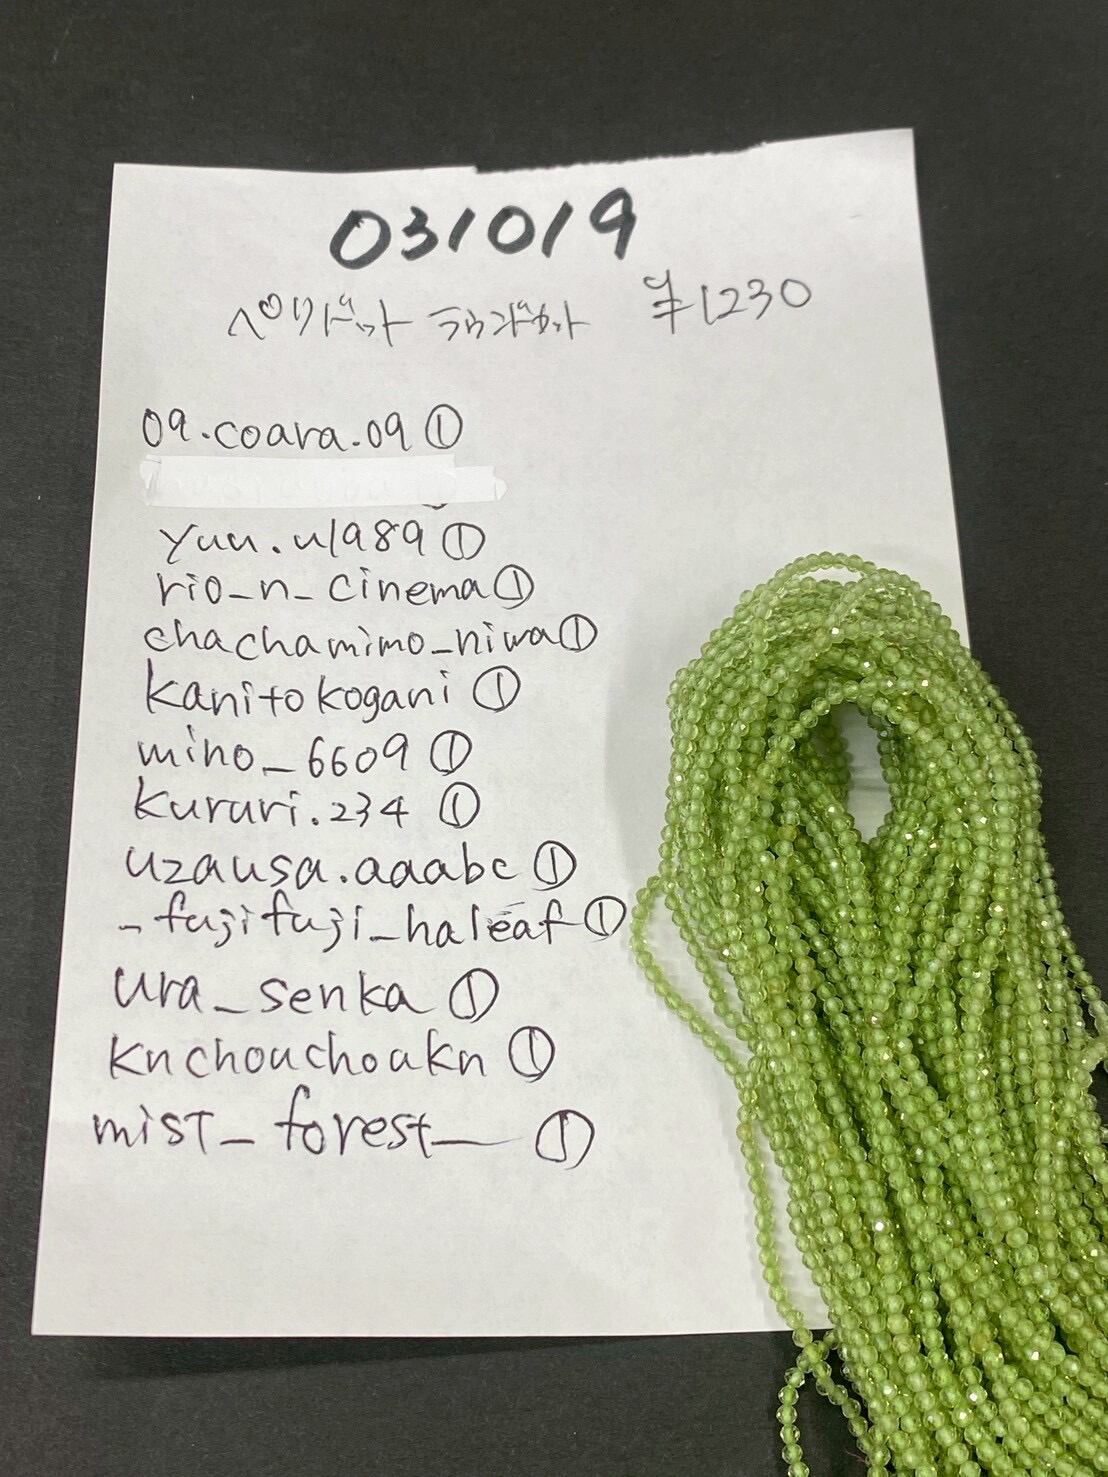 031019
ペリドット ラウンドカット ¥1230
09.coara.09 ①
yuu.u1989 ①
rio_n_cinema ①
chachamimo_niwa ①
kanitokogani ①
mino_6609 ①
kururi.234 ①
uzausa.aaabc ①
_fujifuji_haleaf ①
ura_senka ①
knchouchoukn ①
mist_forest_ ①